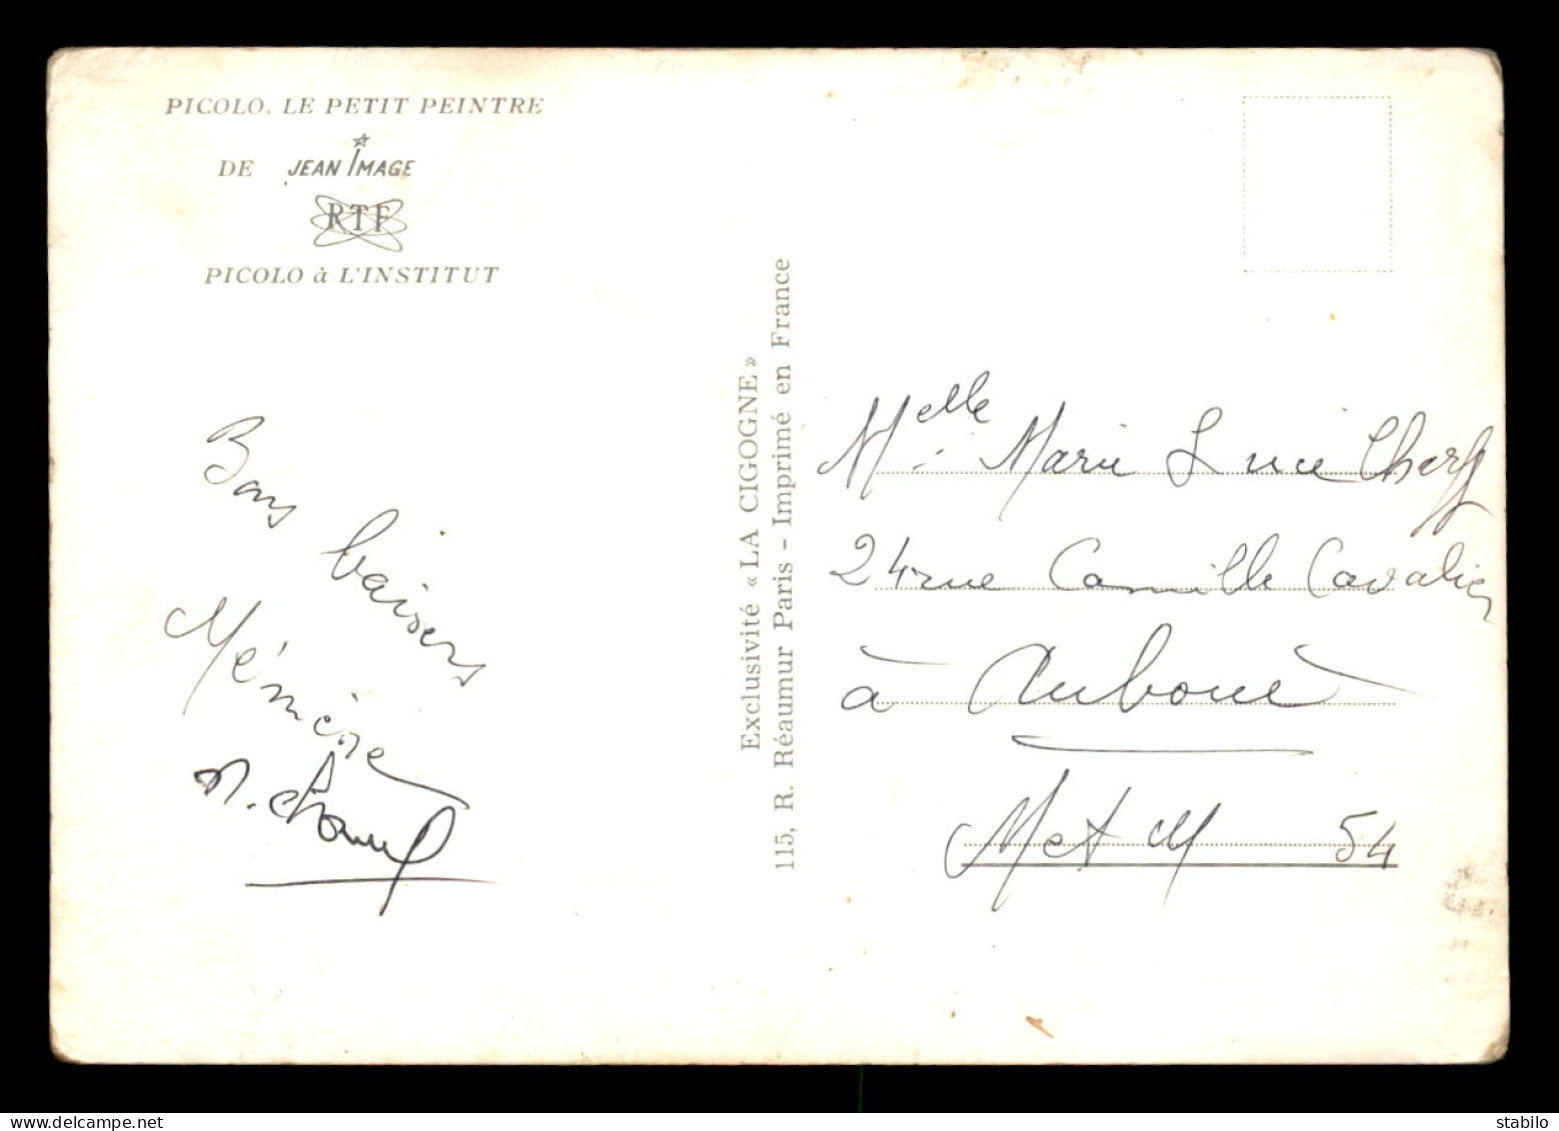 PICOLO. LE PETIT PEINTRE
DE JEAN IMAGE
RTF
PICOLO à L'INSTITUT
Bons baisers
Mémère
Exclusivité «LA CIGOGNE»
115, R. Réaumur Paris - Imprimé en France
Melle Marie Lucie
24 rue Camille Cavalier
à Auboué
Met M 54
delcampe.net
stabilo